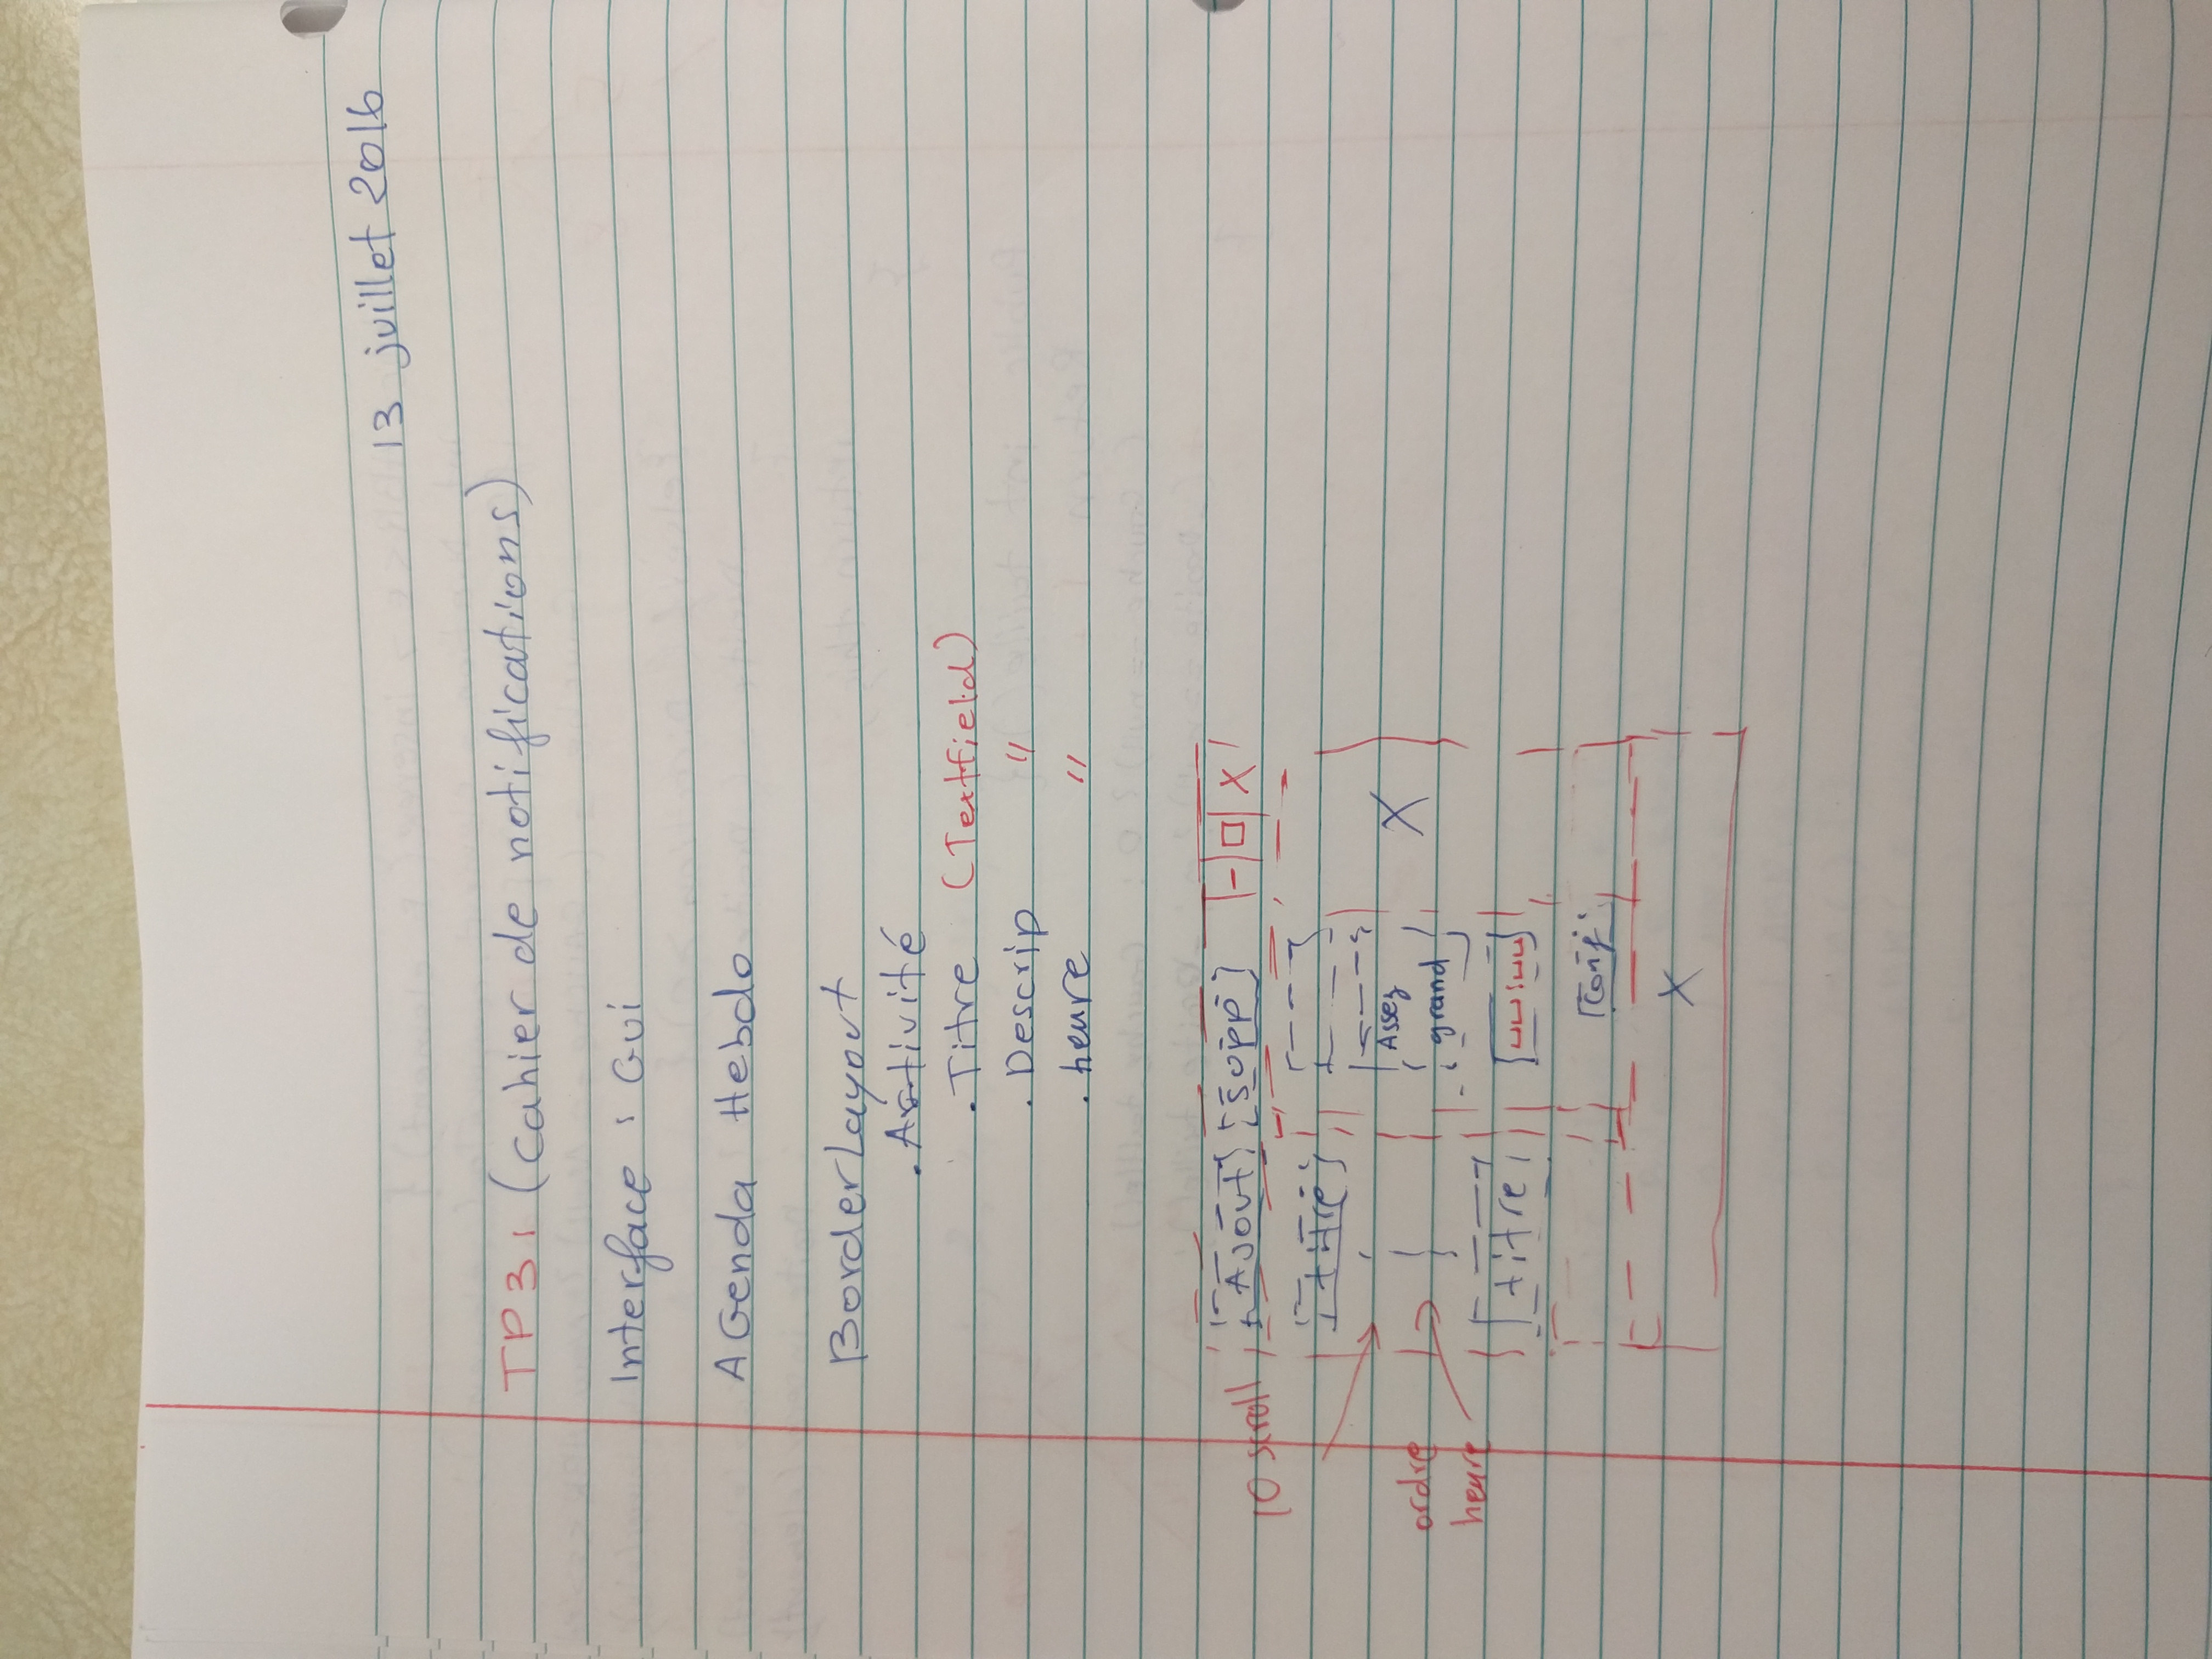 13 juillet 2016
TP3: (Cahier de notifications)
Interface : Gui
AGenda Hebdo
BorderLayout
. Activité
. Titre (Textfield)
. Descrip "
. heure "
- □ X
Ajout Supp
10 scroll
titre
Assez
grand
X
ordre
heure
titre
Conf.
X